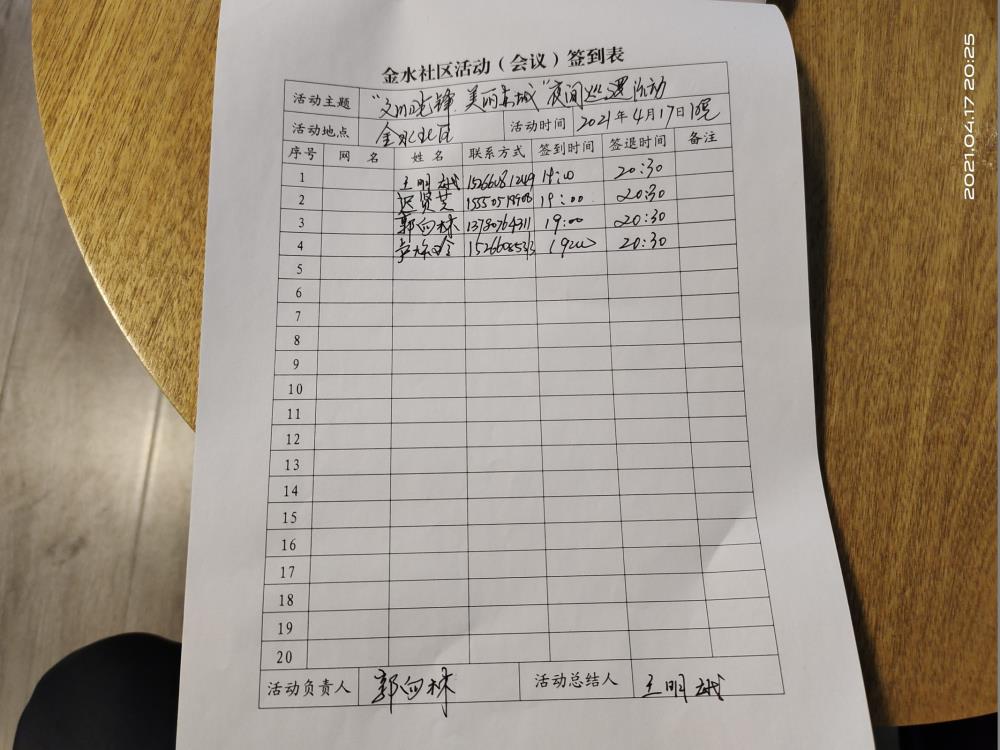 金水社区活动（会议）签到表
活动主题 "文明先锋 美丽东城"夜间巡逻活动
活动地点 金水社区 活动时间 2021年4月17日晚
序号 网 名 姓 名 联系方式 签到时间 签退时间 备注
1 王明 19:00 20:30
2 迟贤芝 19:00 20:30
3 郭向林 19:00 20:30
4 19:00 20:30
5
6
7
8
9
10
11
12
13
14
15
16
17
18
19
20
活动负责人 郭向林 活动总结人 王明
2021.04.17 20:25